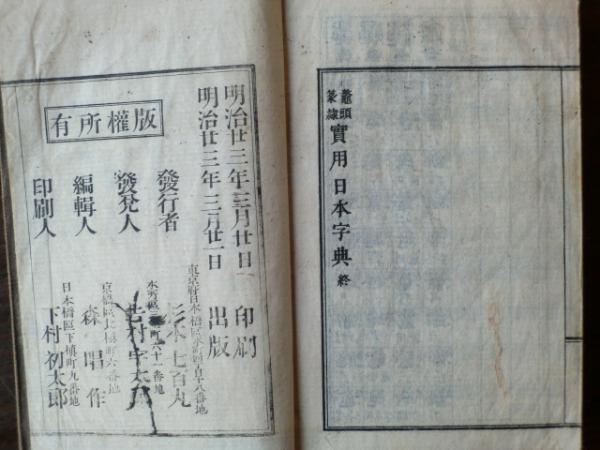 鼇頭
篆隷
實用日本字典 終
明治廿三年三月廿日 印刷
明治廿三年三月廿一日 出版
版權所有
發行者
杉本七百丸
發兌人
編輯人
京橋區長橫町六番地
森 唱作
印刷人
日本橋區下槇町九番地
下村初太郎